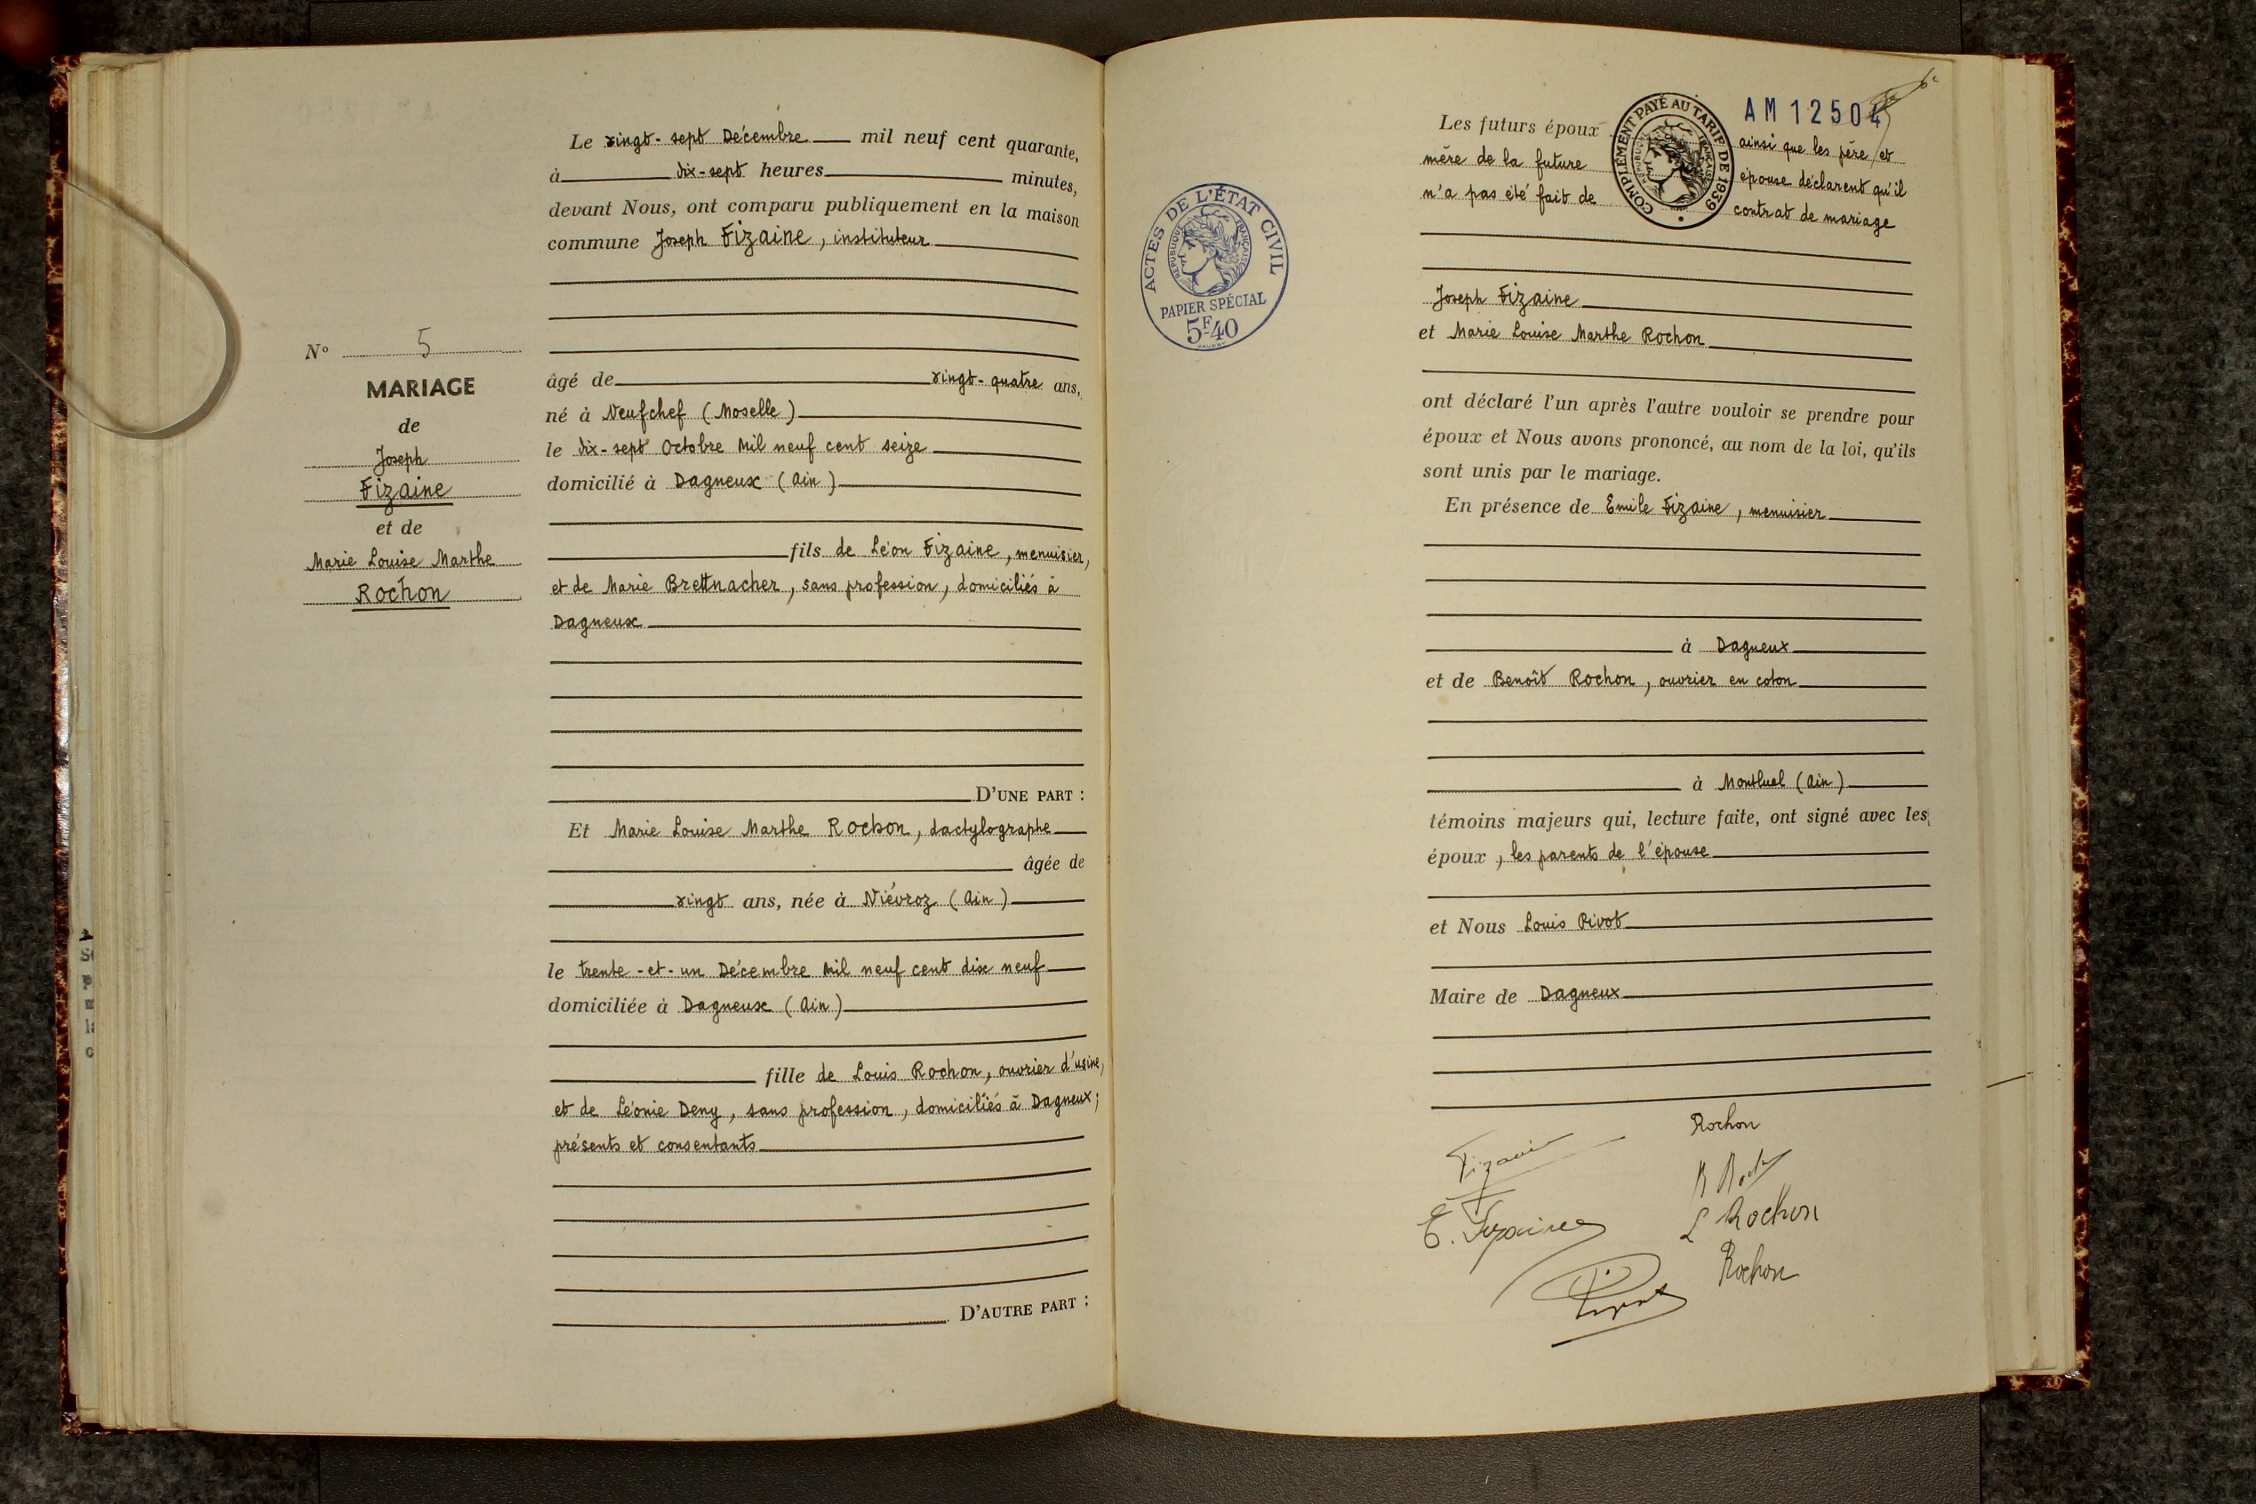 Le vingt-sept Décembre mil neuf cent quarante,
à dix-sept heures minutes,
devant Nous, ont comparu publiquement en la maison
commune Joseph Fizaine, instituteur
N° 5
MARIAGE
de
Joseph
Fizaine
et de
Marie Louise Marthe
Rochon
âgé de vingt-quatre ans,
né à Neufchef (Moselle)
le dix-sept Octobre mil neuf cent seize
domicilié à Dagneux (Ain)
fils de Léon Fizaine, menuisier,
et de Marie Brettnacher, sans profession, domiciliés à
Dagneux
D'UNE PART :
Et Marie Louise Marthe Rochon, dactylographe
âgée de
vingt ans, née à Niévroz (Ain)
le trente-et-un Décembre mil neuf cent dix neuf
domiciliée à Dagneux (Ain)
fille de Louis Rochon, ouvrier d'usine,
et de Léonie Deny, sans profession, domiciliés à Dagneux;
présents et consentants
D'AUTRE PART :
ACTES DE L'ÉTAT CIVIL
RÉPUBLIQUE FRANÇAISE
PAPIER SPÉCIAL
5F40
COMPLÉMENT PAYÉ AU TARIF DE 1939
RÉPUBLIQUE FRANÇAISE
AM 12504
Les futurs époux ainsi que les père et
mère de la future épouse déclarent qu'il
n'a pas été fait de contrat de mariage
Joseph Fizaine
et Marie Louise Marthe Rochon
ont déclaré l'un après l'autre vouloir se prendre pour
époux et Nous avons prononcé, au nom de la loi, qu'ils
sont unis par le mariage.
En présence de Emile Fizaine, menuisier
à Dagneux
et de Benoît Rochon, ouvrier en coton
à Montluel (Ain)
témoins majeurs qui, lecture faite, ont signé avec les
époux, les parents de l'épouse
et Nous Louis Pivot
Maire de Dagneux
Rochon
Fizaine
E. Fizaine
L Rochon
Rochon
Pivot